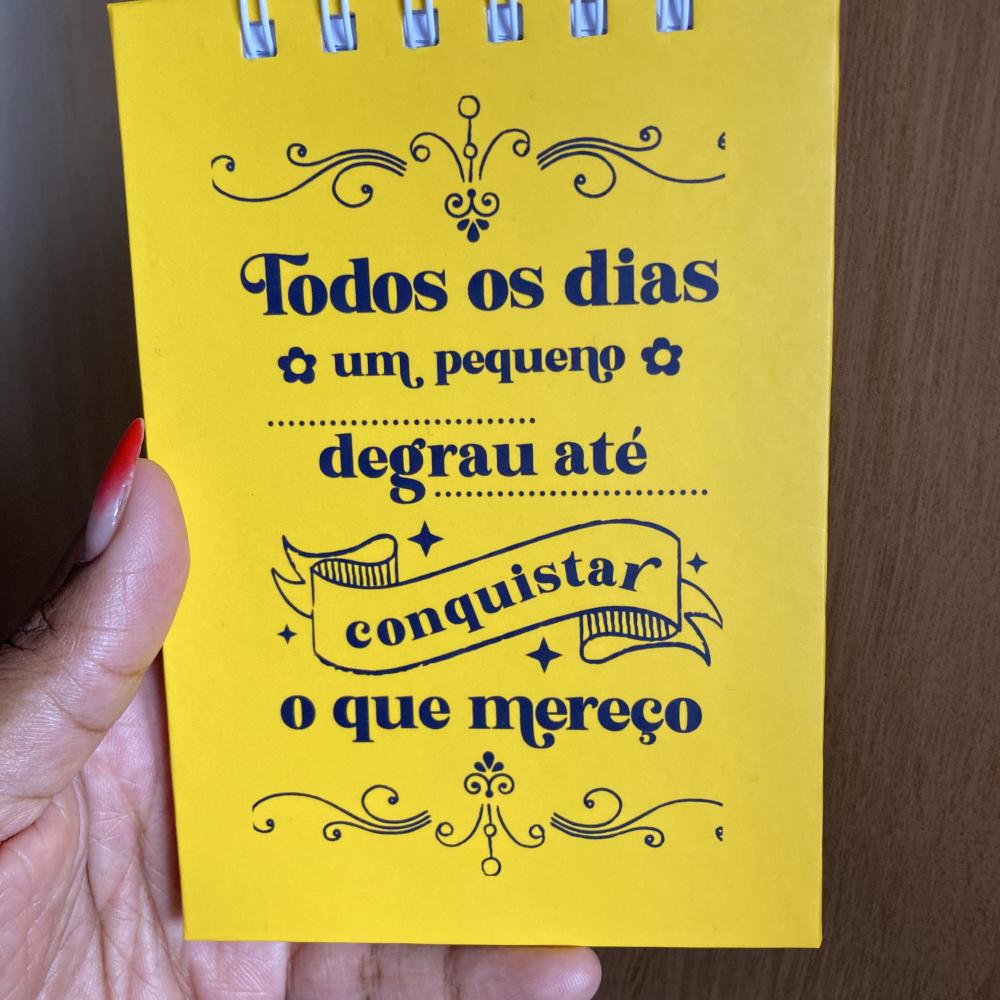 Todos os dias
um pequeno
degrau até
conquistar
o que mereço